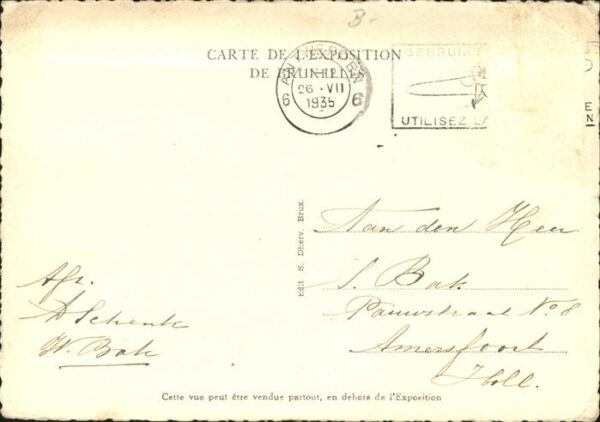 B-
CARTE DE L'EXPOSITION
DE BRUXELLES
ANTWERPEN
6 26 · VII 6
1935
GEBRUIKT
UTILISEZ LA
EN
Edit. S. Dherv. Brux.
Aan den Heer
S. Bak
Pauwstraat No 8
Amersfoort
Holl.
Afz.
A Schenk
W. Bak
Cette vue peut être vendue partout, en dehors de l'Exposition